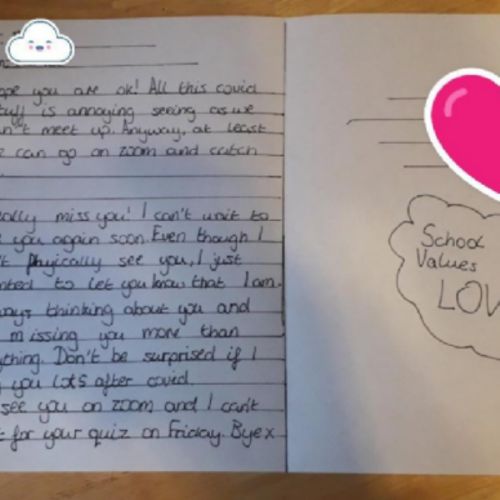 ope you are ok! All this covid
tuff is annoying seeing as we
n't meet up. Anyway, at least
can go on zoom and catch
eally miss you! I can't wait to
e you again soon. Even though I
't phyically see you, I just
nted to let you know that I am.
ways thinking about you and
missing you more than
ything. Don't be surprised if I
you lots after covid.
see you on zoom and I can't
t for your quiz on Friday. Bye x
School
Values
LOV